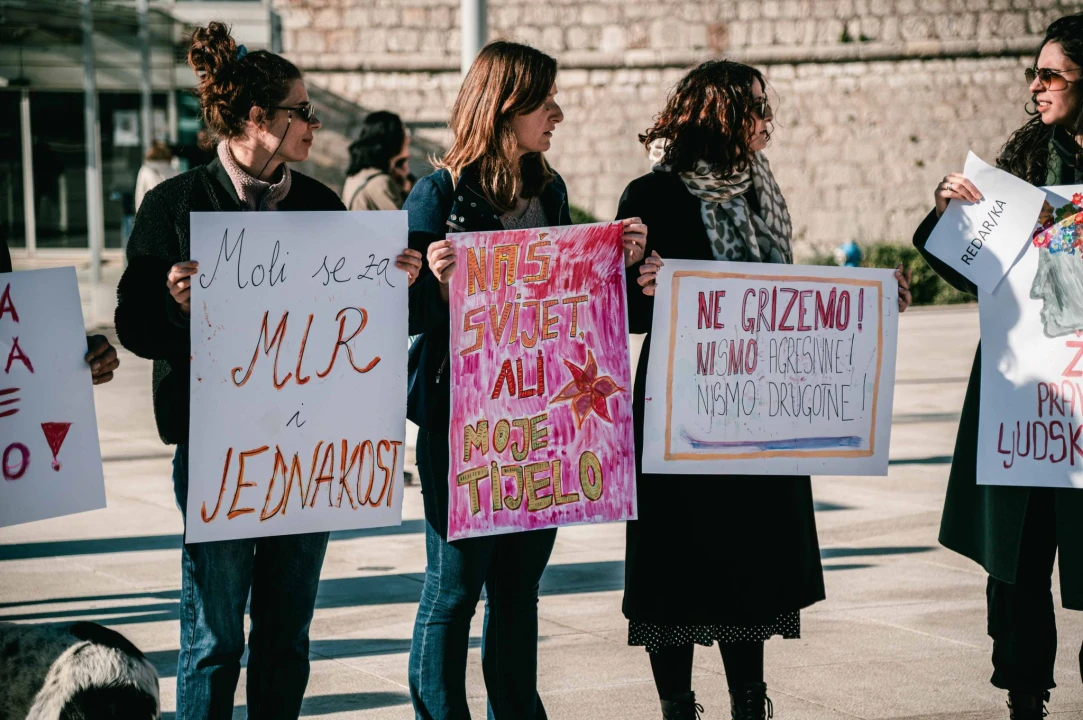 A
A
O!
Moli se za
MIR
i
JEDNAKOST
NAŠ
SVIJET,
ALI
MOJE
TIJELO
NE GRIZEMO!
NISMO AGRESIVNE!
NISMO DRUGOTNE!
REDAR/KA
PRAV
LJUDSK